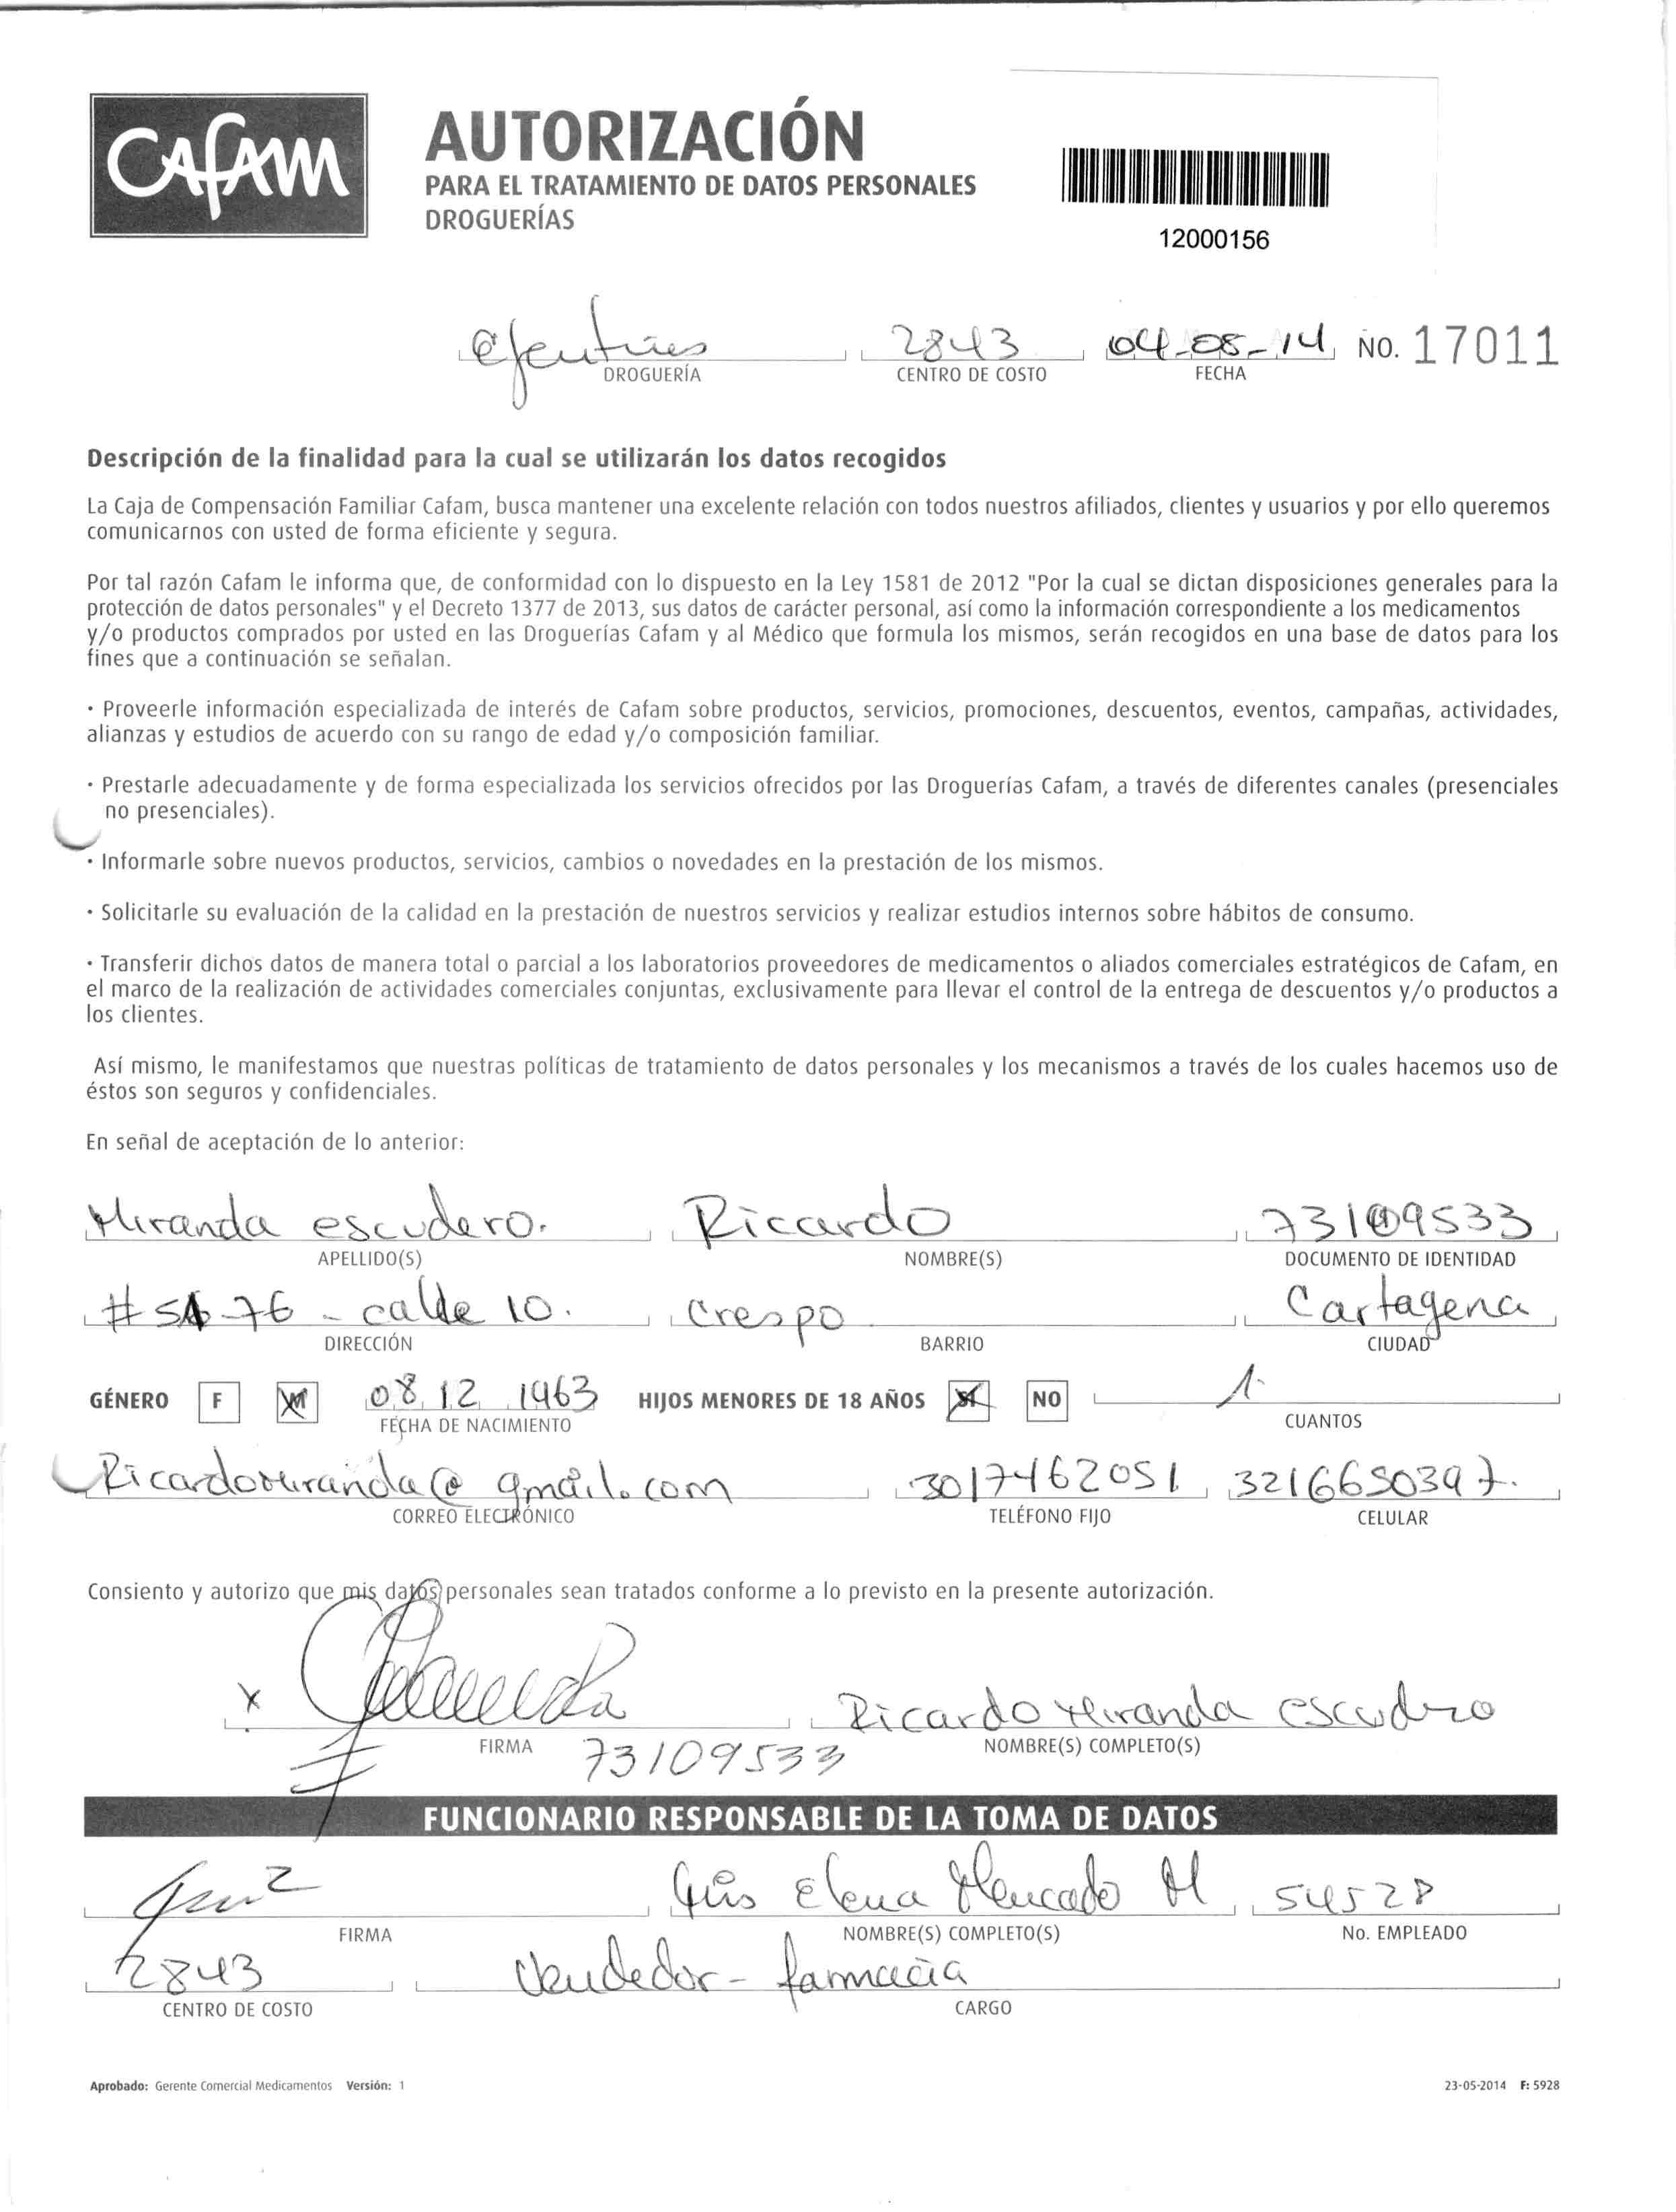 CAFAM
AUTORIZACIÓN
PARA EL TRATAMIENTO DE DATOS PERSONALES
DROGUERÍAS
12000156
2843 04-08-14 NO. 17011
DROGUERÍA CENTRO DE COSTO FECHA
Descripción de la finalidad para la cual se utilizarán los datos recogidos
La Caja de Compensación Familiar Cafam, busca mantener una excelente relación con todos nuestros afiliados, clientes y usuarios y por ello queremos
comunicarnos con usted de forma eficiente y segura.
Por tal razón Cafam le informa que, de conformidad con lo dispuesto en la Ley 1581 de 2012 "Por la cual se dictan disposiciones generales para la
protección de datos personales" y el Decreto 1377 de 2013, sus datos de carácter personal, así como la información correspondiente a los medicamentos
y/o productos comprados por usted en las Droguerías Cafam y al Médico que formula los mismos, serán recogidos en una base de datos para los
fines que a continuación se señalan.
· Proveerle información especializada de interés de Cafam sobre productos, servicios, promociones, descuentos, eventos, campañas, actividades,
alianzas y estudios de acuerdo con su rango de edad y/o composición familiar.
· Prestarle adecuadamente y de forma especializada los servicios ofrecidos por las Droguerías Cafam, a través de diferentes canales (presenciales
no presenciales).
· Informarle sobre nuevos productos, servicios, cambios o novedades en la prestación de los mismos.
· Solicitarle su evaluación de la calidad en la prestación de nuestros servicios y realizar estudios internos sobre hábitos de consumo.
· Transferir dichos datos de manera total o parcial a los laboratorios proveedores de medicamentos o aliados comerciales estratégicos de Cafam, en
el marco de la realización de actividades comerciales conjuntas, exclusivamente para llevar el control de la entrega de descuentos y/o productos a
los clientes.
Así mismo, le manifestamos que nuestras políticas de tratamiento de datos personales y los mecanismos a través de los cuales hacemos uso de
éstos son seguros y confidenciales.
En señal de aceptación de lo anterior:
Miranda escudero. Ricardo 73109533
APELLIDO(S) NOMBRE(S) DOCUMENTO DE IDENTIDAD
calle 10. Crespo Cartagena
DIRECCIÓN BARRIO CIUDAD
GÉNERO F M 08 12 1963 HIJOS MENORES DE 18 AÑOS SI NO 1
FECHA DE NACIMIENTO CUANTOS
Ricardomiranda@gmail.com 3017462051 3216650397.
CORREO ELECTRÓNICO TELÉFONO FIJO CELULAR
Consiento y autorizo que mis datos personales sean tratados conforme a lo previsto en la presente autorización.
X Ricardo Miranda escudero
FIRMA 73109533 NOMBRE(S) COMPLETO(S)
FUNCIONARIO RESPONSABLE DE LA TOMA DE DATOS
Elena Mercado M 54528
FIRMA NOMBRE(S) COMPLETO(S) No. EMPLEADO
2843 Vendedor - farmacia
CENTRO DE COSTO CARGO
Aprobado: Gerente Comercial Medicamentos Versión: 1 23-05-2014 F: 5928